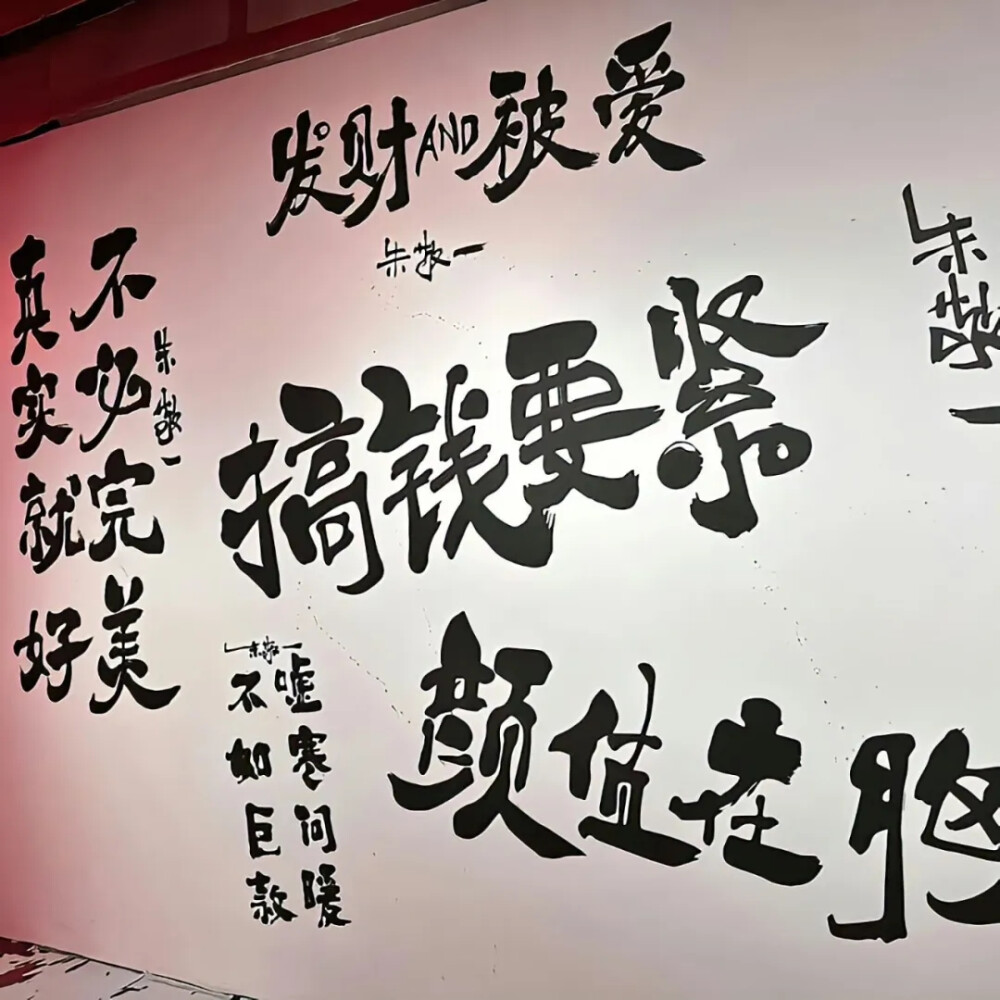 发财AND被爱
朱敬一
朱敬一
不必完美
真实就好
朱敬一
搞钱要紧
朱敬一
嘘寒问暖
不如巨款
颜值在胸